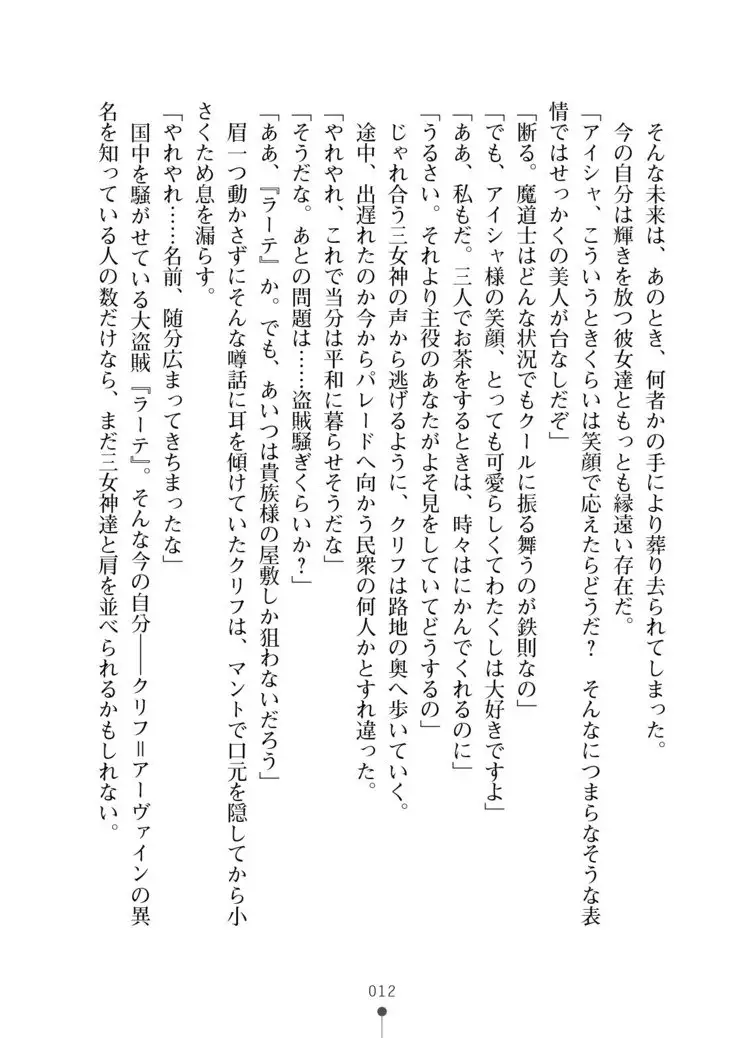 そんな未来は、あのとき、何者かの手により葬り去られてしまった。
今の自分は輝きを放つ彼女達ともっとも縁遠い存在だ。
「アイシャ、こういうときくらいは笑顔で応えたらどうだ?　そんなにつまらなそうな表
情ではせっかくの美人が台なしだぞ」
「断る。魔道士はどんな状況でもクールに振る舞うのが鉄則なの」
「でも、アイシャ様の笑顔、とっても可愛らしくてわたくしは大好きですよ」
「ああ、私もだ。三人でお茶をするときは、時々はにかんでくれるのに」
「うるさい。それより主役のあなたがよそ見をしていてどうするの」
じゃれ合う三女神の声から逃げるように、クリフは路地の奥へ歩いていく。
途中、出遅れたのか今からパレードへ向かう民衆の何人かとすれ違った。
「やれやれ、これで当分は平和に暮らせそうだな」
「そうだな。あとの問題は……盗賊騒ぎくらいか?」
「ああ、『ラーテ』か。でも、あいつは貴族様の屋敷しか狙わないだろう」
眉一つ動かさずにそんな噂話に耳を傾けていたクリフは、マントで口元を隠してから小
さくため息を漏らす。
「やれやれ……名前、随分広まってきちまったな」
国中を騒がせている大盗賊『ラーテ』。そんな今の自分――クリフ＝アーヴァインの異
名を知っている人の数だけなら、まだ三女神達と肩を並べられるかもしれない。
012